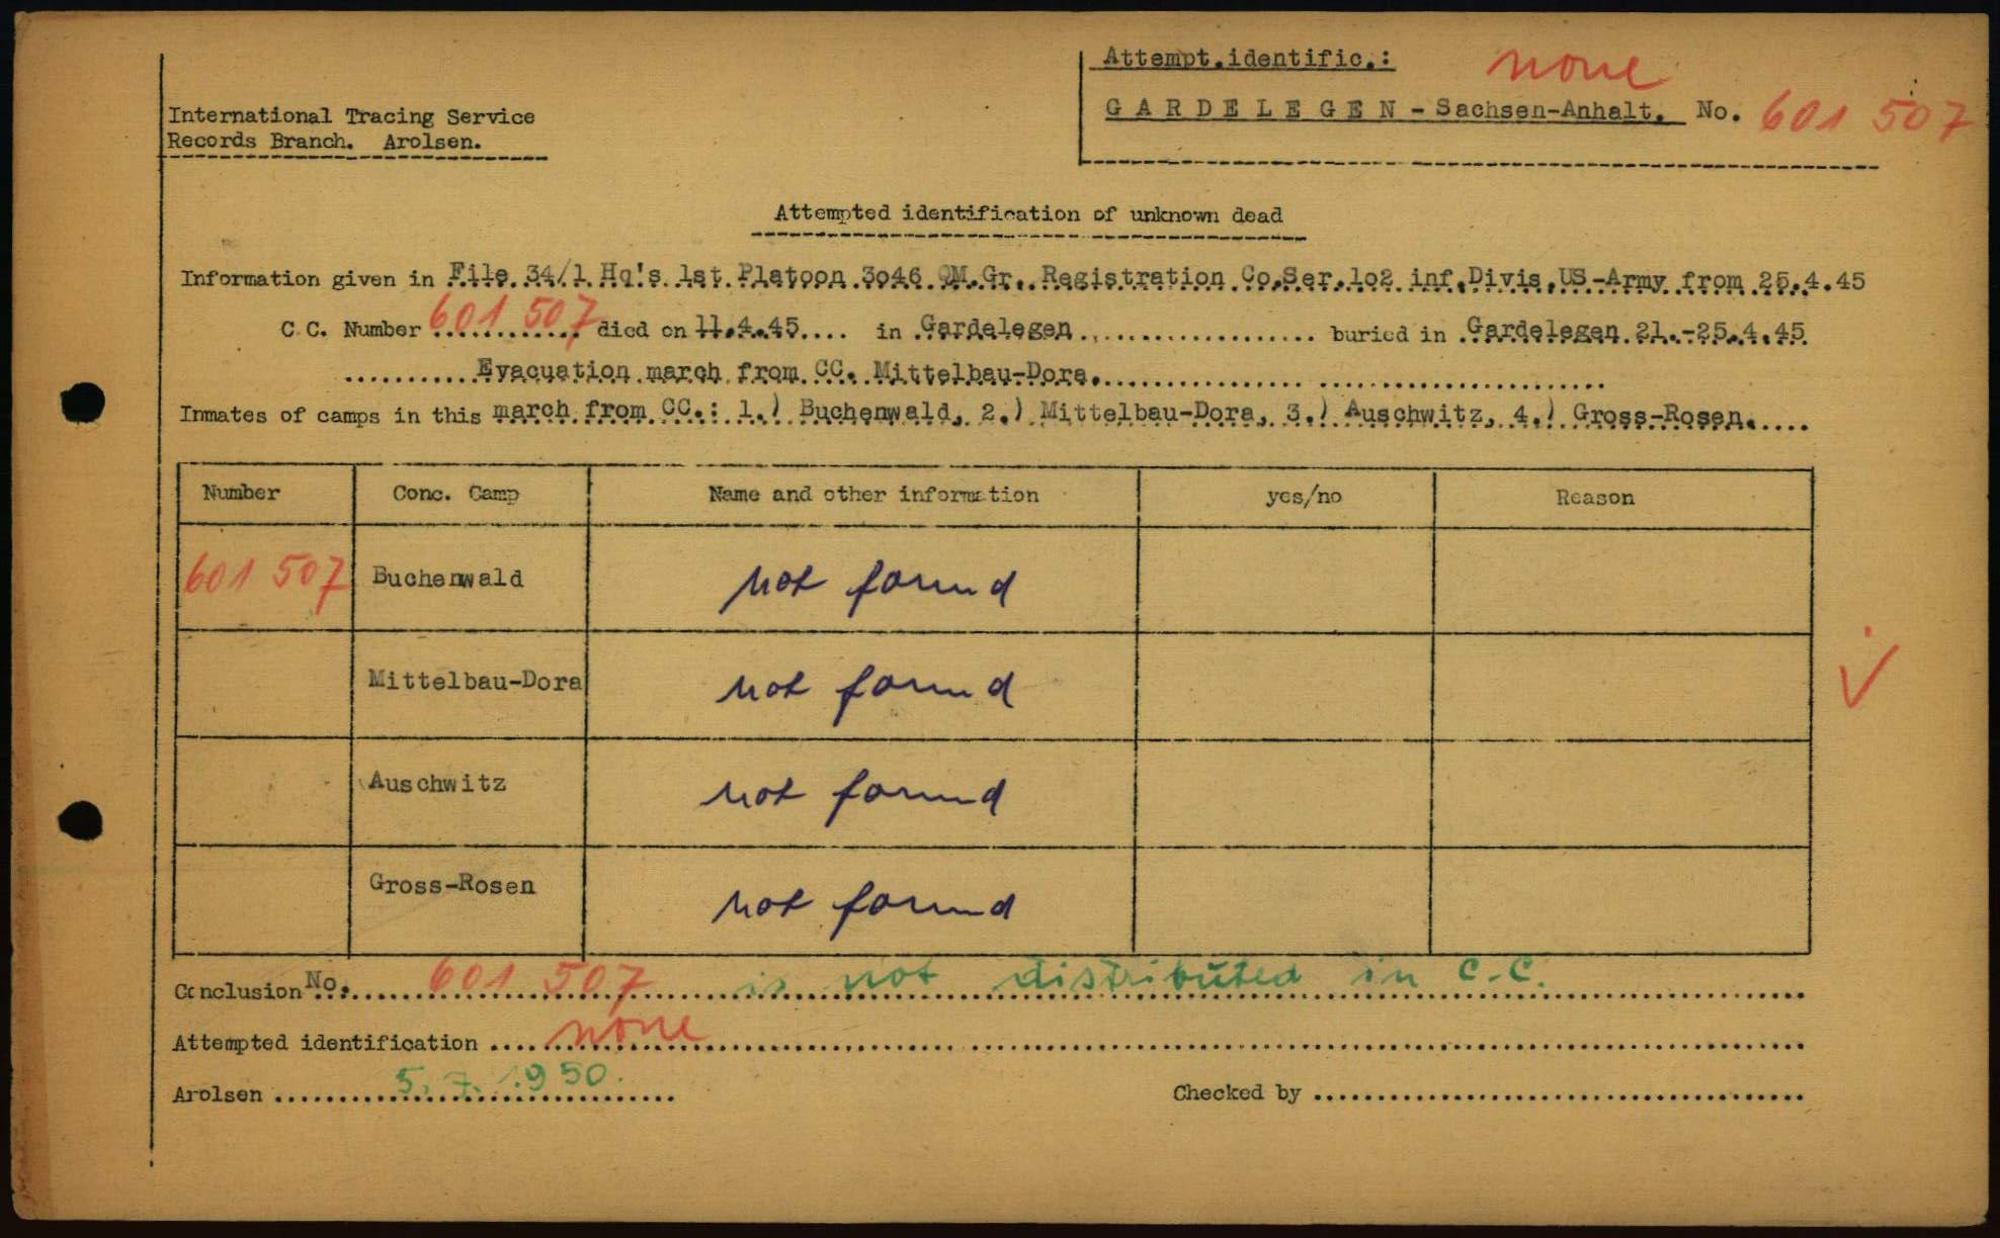 Attempt.identific.: none
GARDELEGEN - Sachsen-Anhalt. No. 601 507
International Tracing Service
Records Branch. Arolsen.
Attempted identification of unknown dead
Information given in File 34/1 Hq's 1st Platoon 3o46 QM.Gr. Registration Co.Ser.1o2 inf.Divis.US-Army from 25.4.45
C.C. Number 601 507 died on 11.4.45.... in Gardelegen.................... buried in Gardelegen 21.-25.4.45
..........Evacuation march from CC. Mittelbau-Dora.......................................
Inmates of camps in this march from CC.: 1.) Buchenwald, 2.) Mittelbau-Dora, 3.) Auschwitz, 4.) Gross-Rosen.....
Number Conc. Camp Name and other information yes/no Reason
601 507 Buchenwald not found
Mittelbau-Dora not found
Auschwitz not found
Gross-Rosen not found
Conclusion No. 601 507 is not distributed in C.C.
Attempted identification .... none
Arolsen 5. 7. 1950.
Checked by ......................................